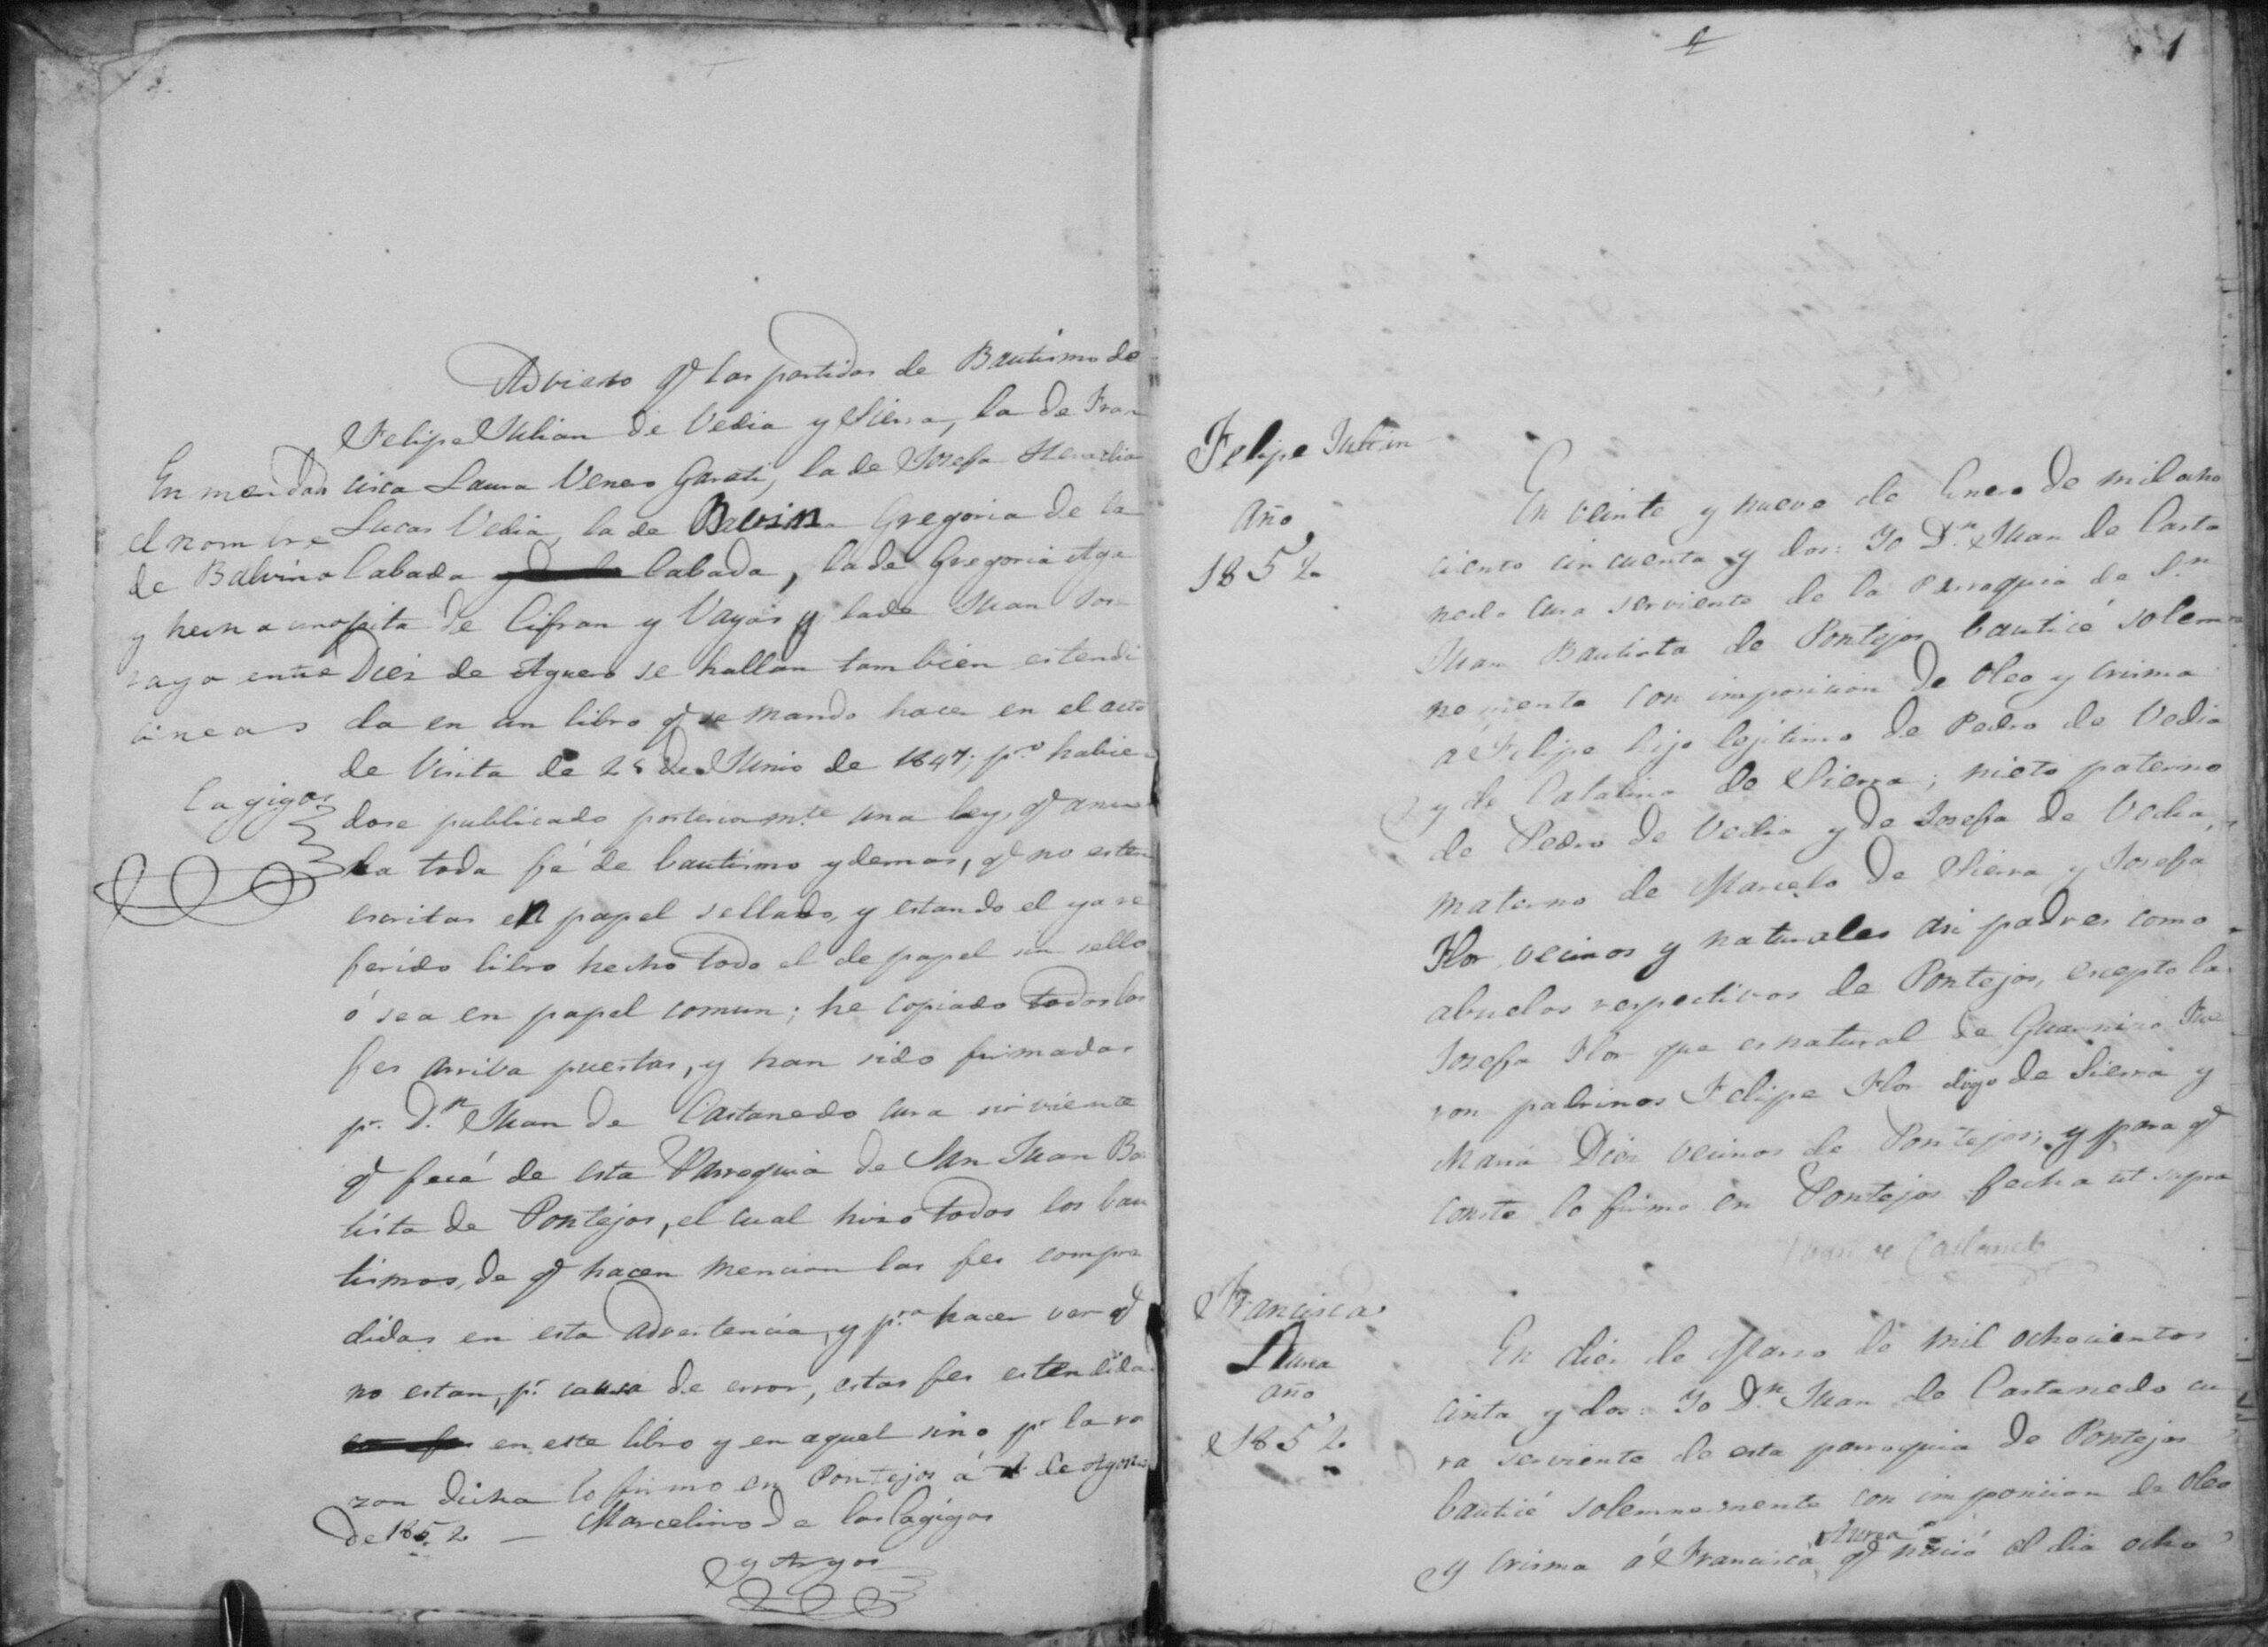 Advierto q.e las partidas de Bautismo de
Felipe Julian de Vedia y Sierra, la de Fran
cisca Laura Venero Garati, la de Josefa
Lucas Vedia, la de Balvina Gregoria de la
Cabada y de la Cabada, la de Gregoria Aga
pita de Cifran y Vayas y la de Juan Jose
Diez de Aguero se hallan tambien estendi
da en un libro q.e se mando hacer en el auto
de Visita de 28 de Junio de 1847; p.o habien
dose publicado posteriorm.te una ley, q.e anu
la toda fé de bautismo y demas, q.e no esten
escritas en papel sellado, y estando el ya re
ferido libro hecho todo el de papel sin sello
ó sea en papel comun; he copiado todas las
fes arriba puestas, y han sido firmadas
p.r D.n Juan de Castanedo cura sirviente
q.e fué de esta Parroquia de San Juan Bau
tista de Pontejos, el cual hizo todos los bau
tismos, de q.e hacen mencion las fes compren
didas en esta advertencia, y p.ra hacer ver q.e
no estan, p.r causa de error, estas fes estendidas
en este libro y en aquel sino p.r la ra
zon dicha lo firmo en Pontejos á de Agosto
de 1852 — Marcelino de las Cagigas
y Argos
Enmendado
el nombre
de Balvina
y hecha una
raya entre
lineas
Cagigas
1
Felipe Julian
Año
1852
En veinte y nueve de Enero de mil ocho
ciento cincuenta y dos: Yo D.n Juan de Casta
nedo cura serviente de la Parroquia de S.n
Juan Bautista de Pontejos bauticé solem
nemente con imposicion de Oleo y Crisma
a Felipe hijo lejitimo de Pedro de Vedia
y de Catalina de Sierra; nieto paterno
de Pedro de Vedia y de Josefa de Vedia,
materno de Marcelo de Sierra y Josefa
Flor vecinos y naturales asi padres como
abuelos respectivos de Pontejos, escepto la
Josefa Flor que es natural de Guarnizo Fue
ron padrinos Felipe Flor digo de Sierra y
Maria Diez vecinos de Pontejos; y para q.e
conste lo firmo en Pontejos fecha ut supra
Juan de Castanedo
Francisca
Aurea
año
1852
En diez de Marzo de mil ochocientos
cinta y dos: Yo D.n Juan de Castanedo cu
ra serviente de esta parroquia de Pontejos
bauticé solemnemente con imposicion de Oleo
y Crisma á Francisca Aurea q.e nació el dia ocho